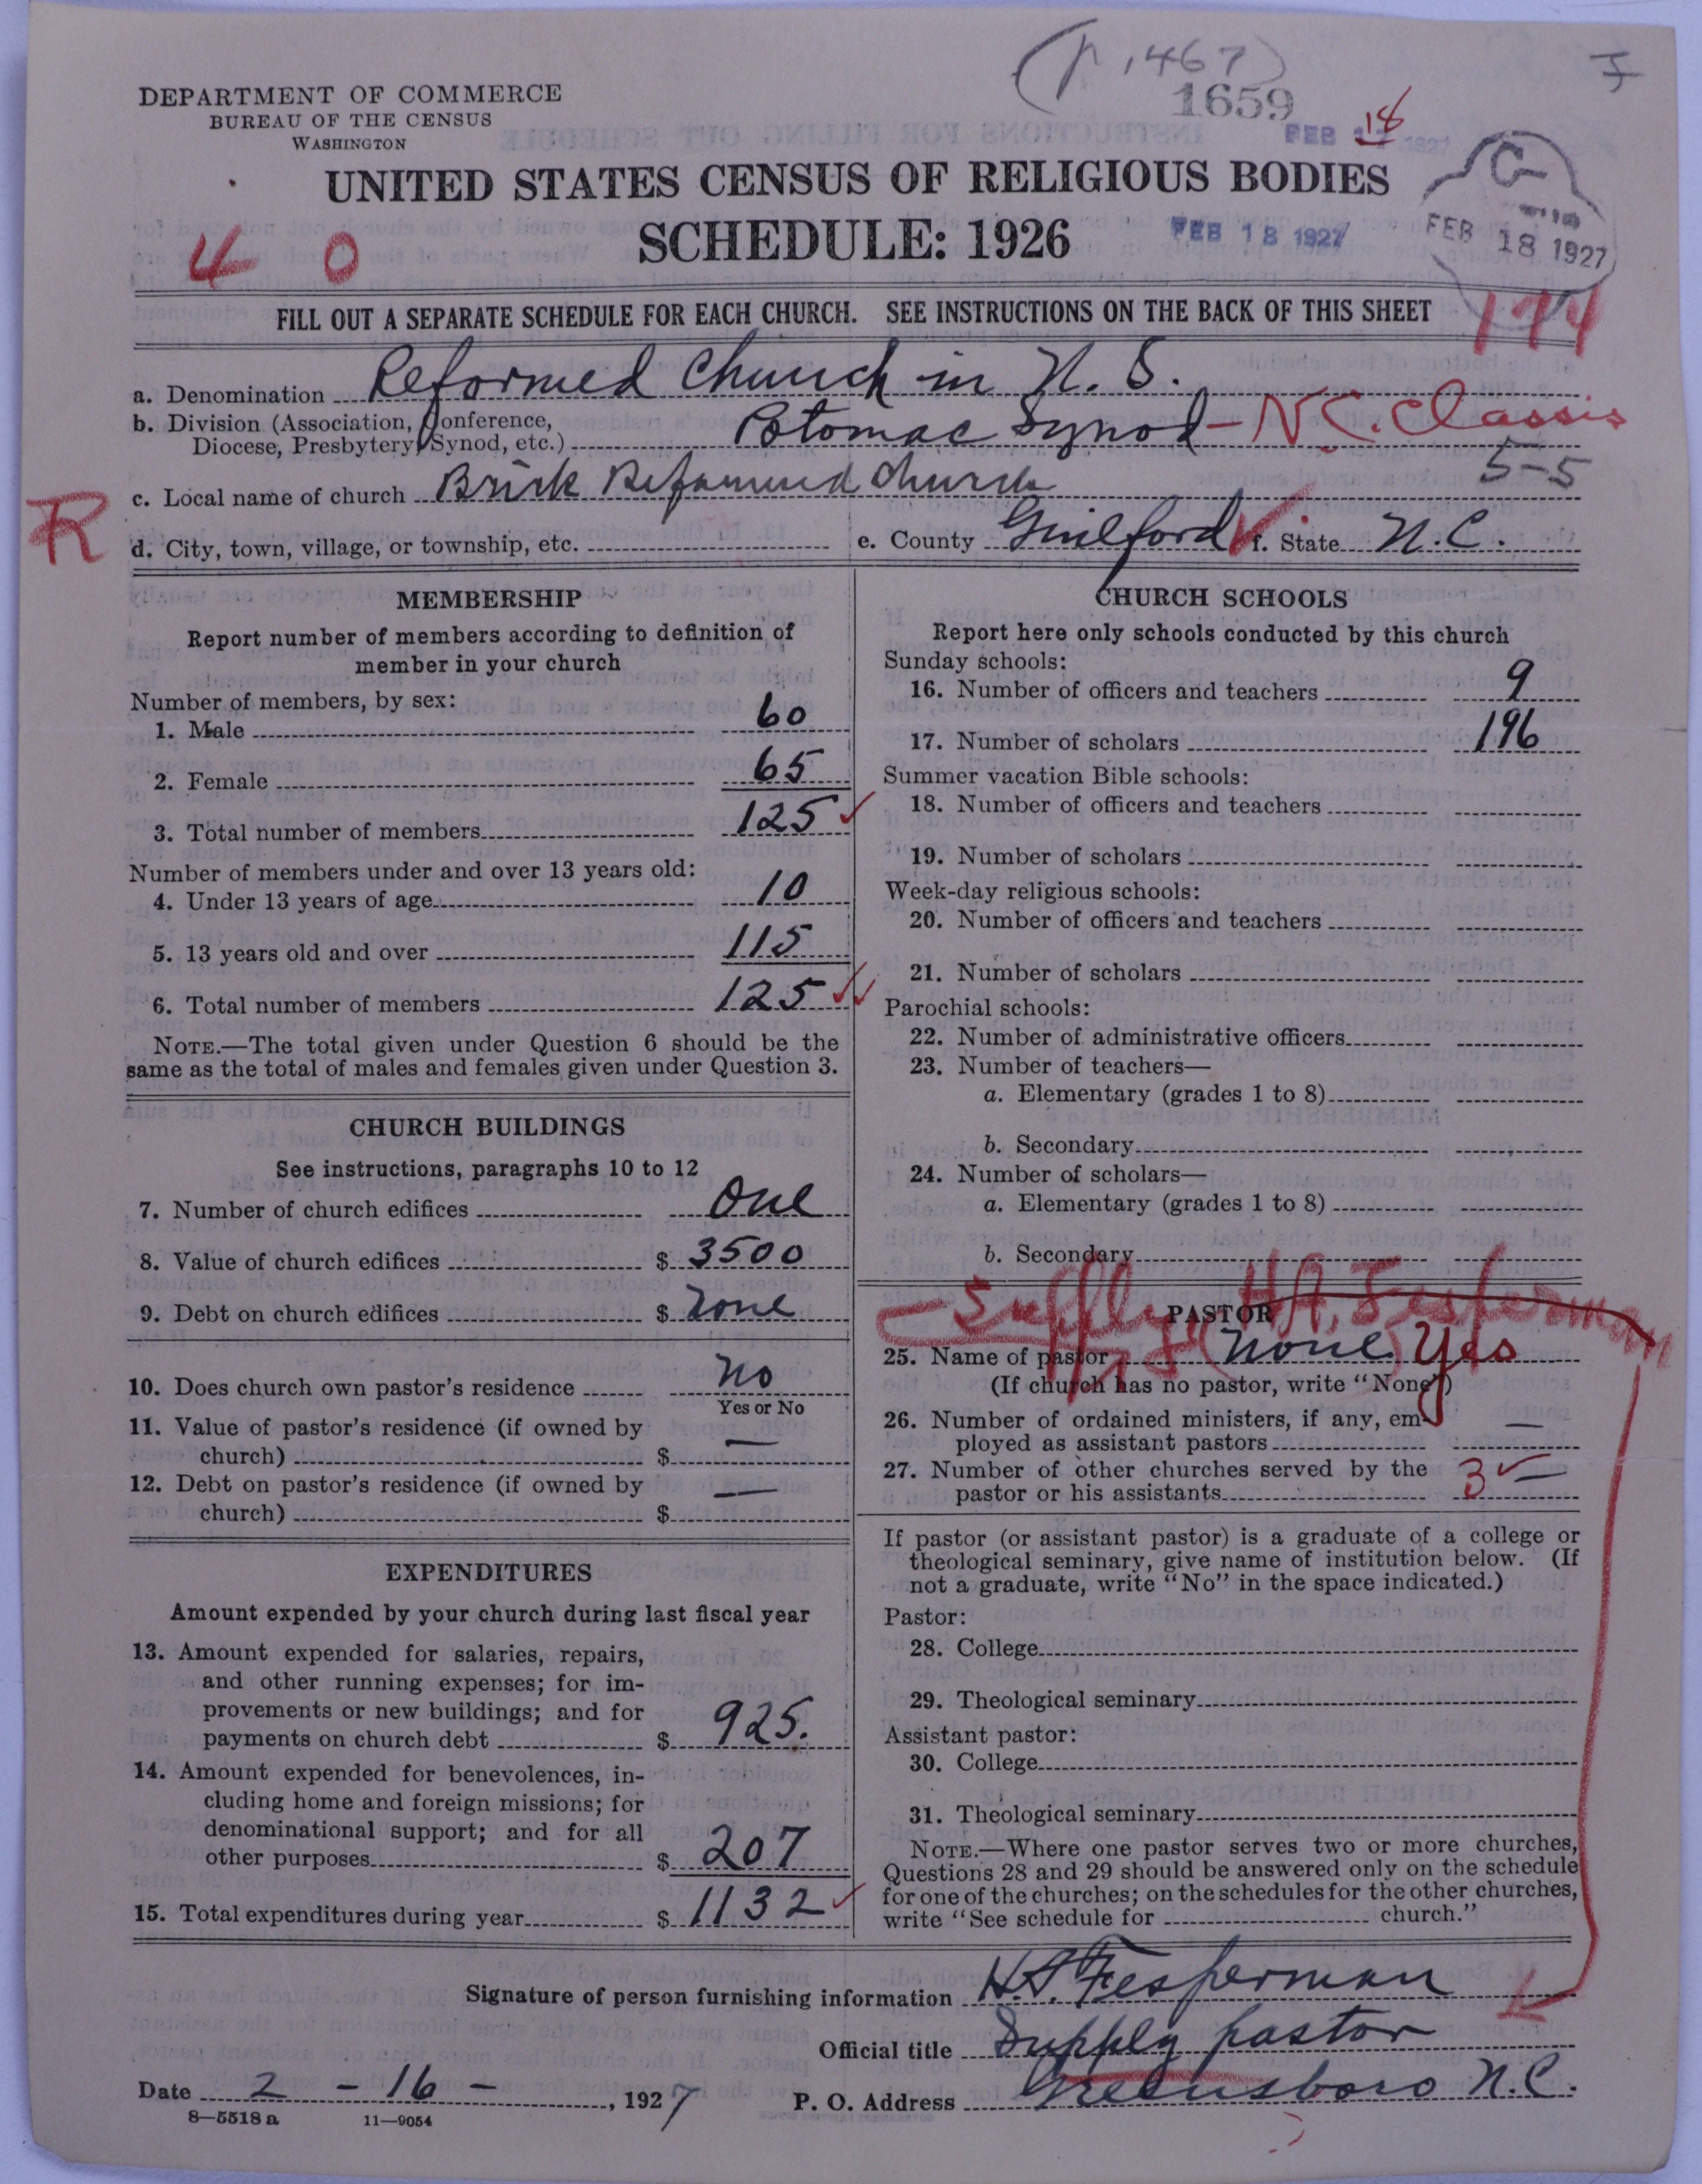 (p. 1467)
1659
DEPARTMENT OF COMMERCE
BUREAU OF THE CENSUS
WASHINGTON
FEB 18 1927
UNITED STATES CENSUS OF RELIGIOUS BODIES
SCHEDULE: 1926
FEB 18 1927
FEB 18 1927
4 0
FILL OUT A SEPARATE SCHEDULE FOR EACH CHURCH. SEE INSTRUCTIONS ON THE BACK OF THIS SHEET
a. Denomination Reformed Church in U. S.
b. Division (Association, Conference,
Diocese, Presbytery, Synod, etc.) Potomac Synod - N.C. Classis
5-5
c. Local name of church Brick Reformed Church
R
d. City, town, village, or township, etc. e. County Guilford f. State N.C.
MEMBERSHIP
Report number of members according to definition of
member in your church
Number of members, by sex:
1. Male 60
2. Female 65
3. Total number of members 125
Number of members under and over 13 years old:
4. Under 13 years of age 10
5. 13 years old and over 115
6. Total number of members 125
NOTE.—The total given under Question 6 should be the
same as the total of males and females given under Question 3.
CHURCH BUILDINGS
See instructions, paragraphs 10 to 12
7. Number of church edifices One
8. Value of church edifices $ 3500
9. Debt on church edifices $ none
10. Does church own pastor's residence No
Yes or No
11. Value of pastor's residence (if owned by
church) $ —
12. Debt on pastor's residence (if owned by
church) $ —
EXPENDITURES
Amount expended by your church during last fiscal year
13. Amount expended for salaries, repairs,
and other running expenses; for im-
provements or new buildings; and for
payments on church debt $ 925.
14. Amount expended for benevolences, in-
cluding home and foreign missions; for
denominational support; and for all
other purposes $ 207
15. Total expenditures during year $ 1132
CHURCH SCHOOLS
Report here only schools conducted by this church
Sunday schools:
16. Number of officers and teachers 9
17. Number of scholars 196
Summer vacation Bible schools:
18. Number of officers and teachers
19. Number of scholars
Week-day religious schools:
20. Number of officers and teachers
21. Number of scholars
Parochial schools:
22. Number of administrative officers
23. Number of teachers—
a. Elementary (grades 1 to 8)
b. Secondary
24. Number of scholars—
a. Elementary (grades 1 to 8)
b. Secondary
Supply H.A. Fesperman
PASTOR
25. Name of pastor (None) Yes
(If church has no pastor, write "None")
26. Number of ordained ministers, if any, em-
ployed as assistant pastors —
27. Number of other churches served by the
pastor or his assistants 3 —
If pastor (or assistant pastor) is a graduate of a college or
theological seminary, give name of institution below. (If
not a graduate, write "No" in the space indicated.)
Pastor:
28. College
29. Theological seminary
Assistant pastor:
30. College
31. Theological seminary
NOTE.—Where one pastor serves two or more churches,
Questions 28 and 29 should be answered only on the schedule
for one of the churches; on the schedules for the other churches,
write "See schedule for church."
Signature of person furnishing information H.A. Fesperman
Official title Supply pastor
Date 2 - 16 - , 1927 P. O. Address Greensboro N.C.
8—5518 a 11—9054